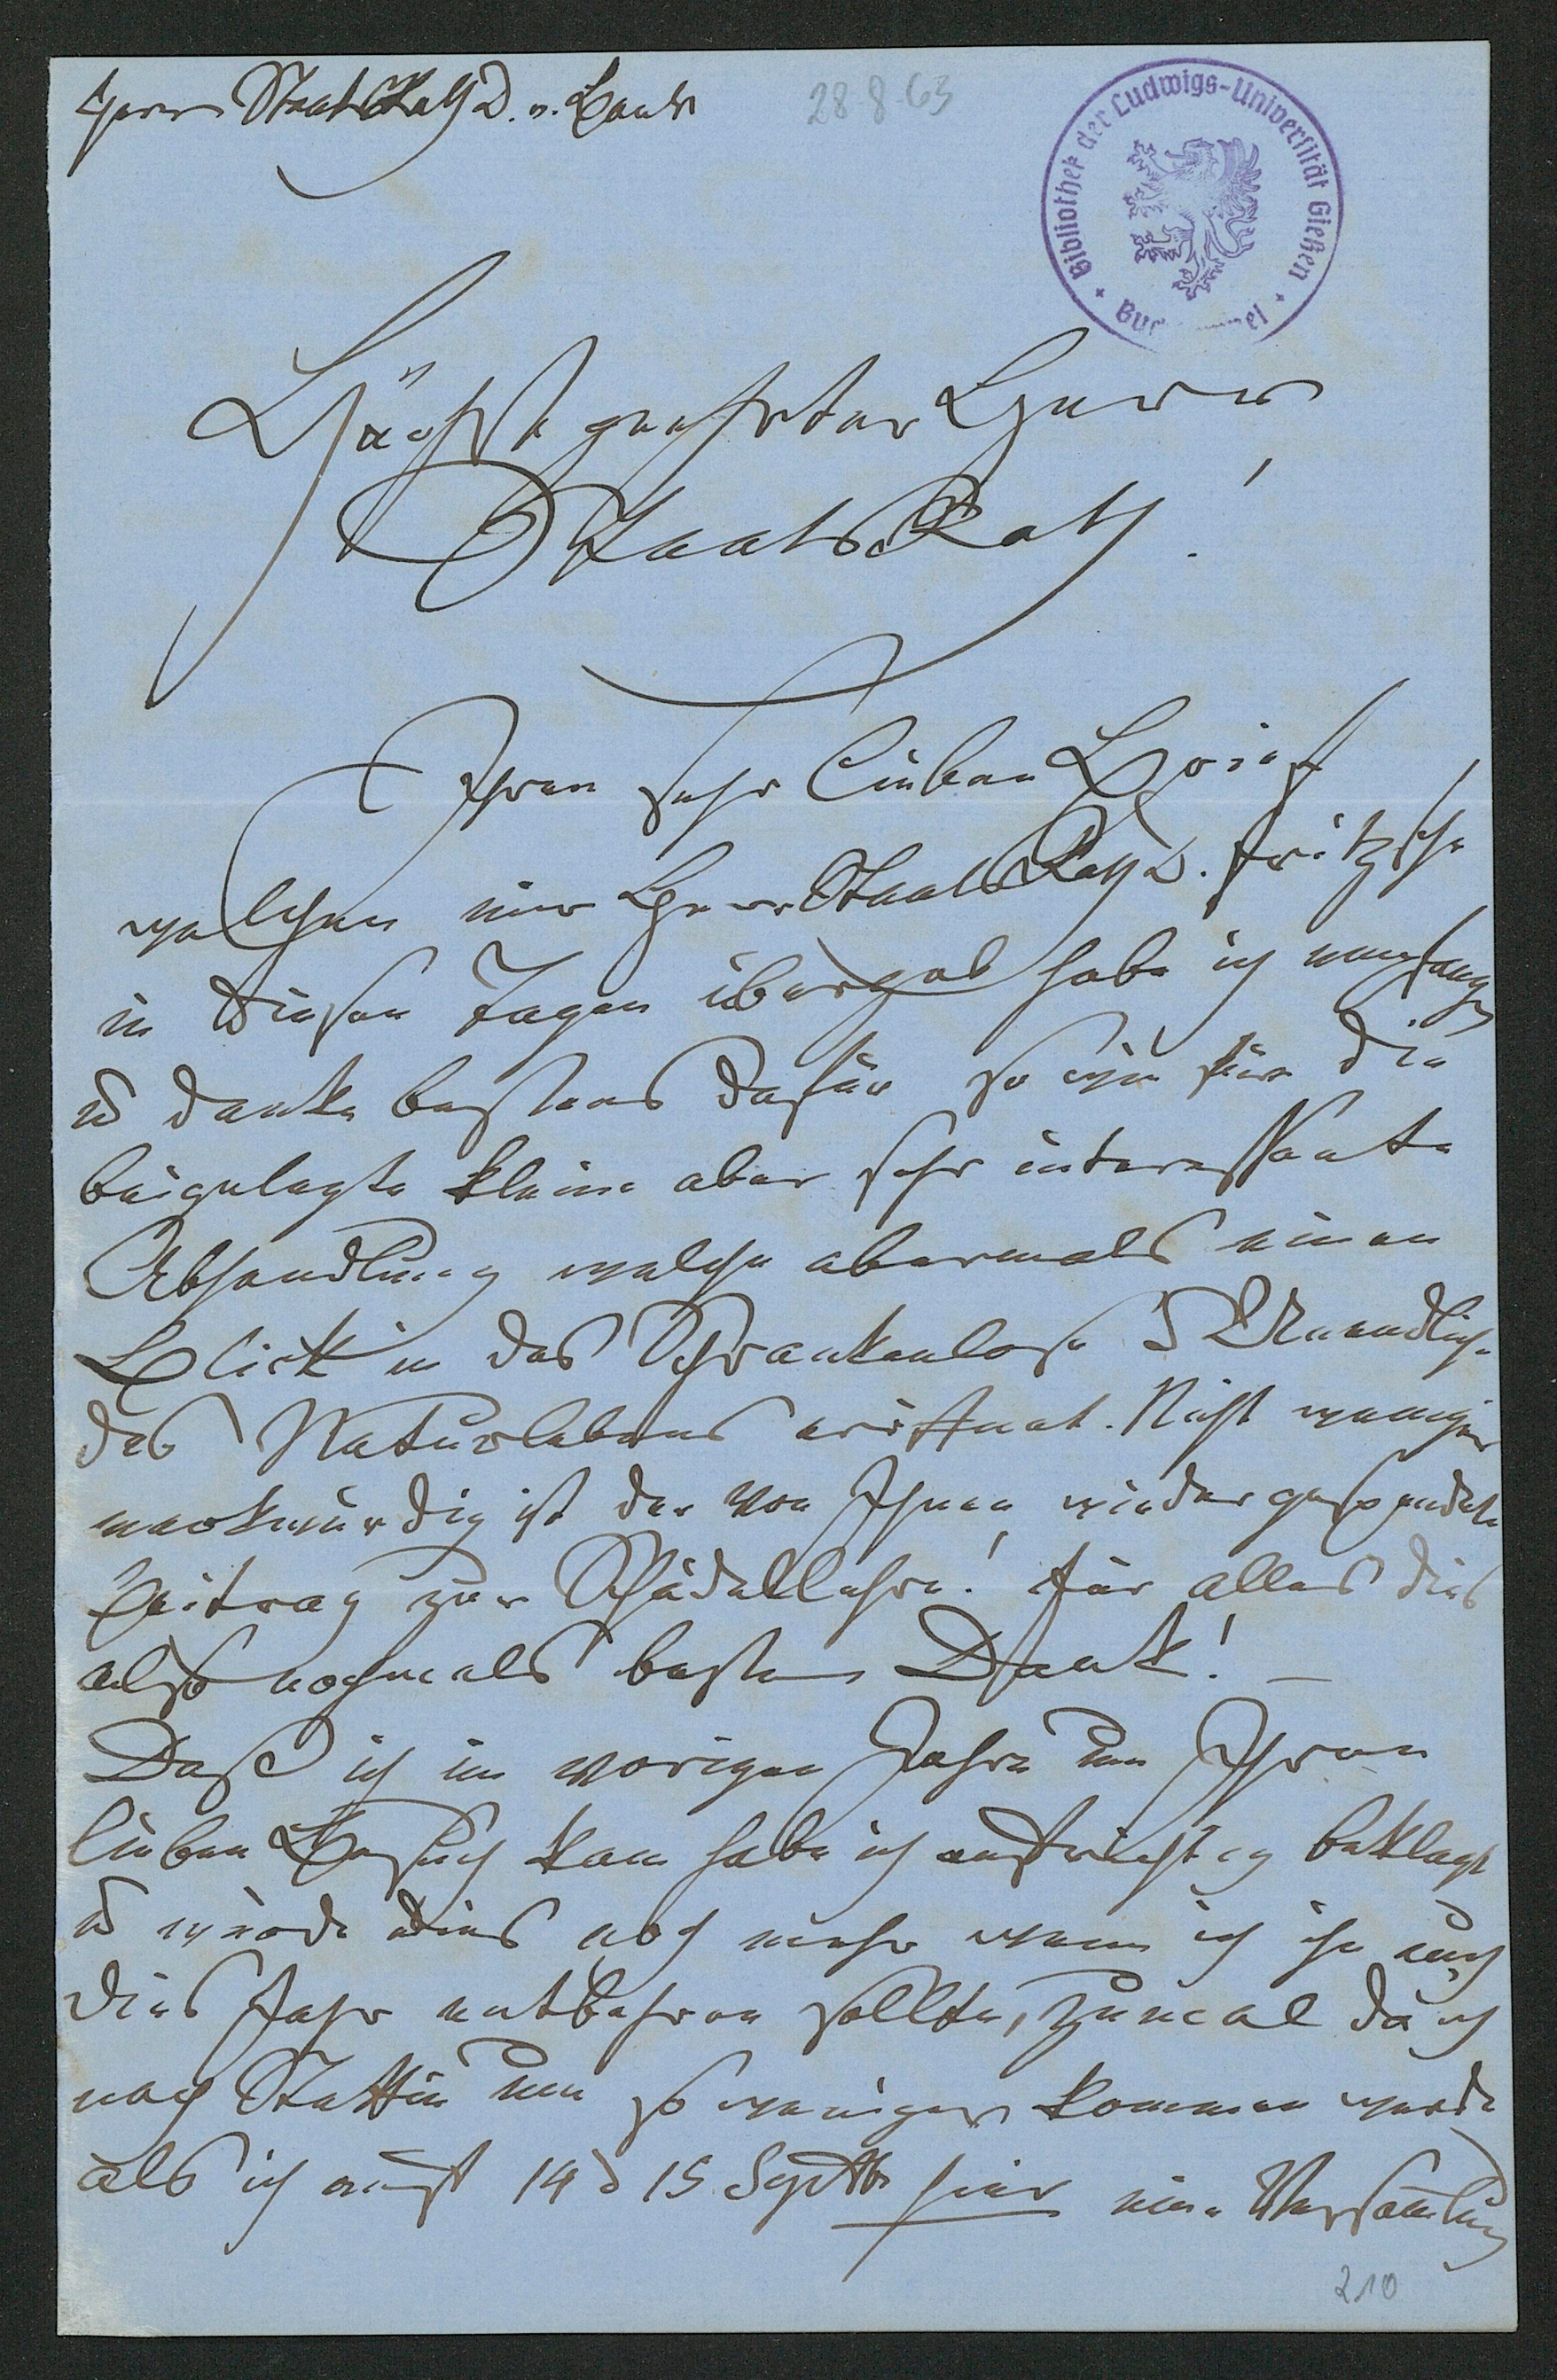 Herrn StaatsRath D. v. Baer
28 8. 63
Bibliothek der Ludwigs-Universität Gießen
Höchst geehrter Herr
StaatsRath!
Ihren sehr lieben Brief
welchen mir Herr StaatsRath D. Fritzsche
in diesen Tagen übergab habe ich empfangen
u danke bestens dafür so wie für die
beigelegte kleine aber sehr interessante
Abhandlung welche abermals einen
Blick in das Schrankenlose u Unendliche
des Naturlebens eröffnet. Nicht weniger
merkwürdig ist der von Ihnen wieder gespendete
Beitrag zur Schädellehre! Für alles dies
also nochmals besten Dank! –
Daß ich im vorigen Jahre um Ihren
lieben Besuch kam habe ich aufrichtig beklagt
u würde dies noch mehr wenn ich ihn auch
dies Jahr entbehren sollte, zumal da ich
nach Stettin um so weniger kommen werde
als ich erst 14 u 15 Septbr hier eine Versamlung
210